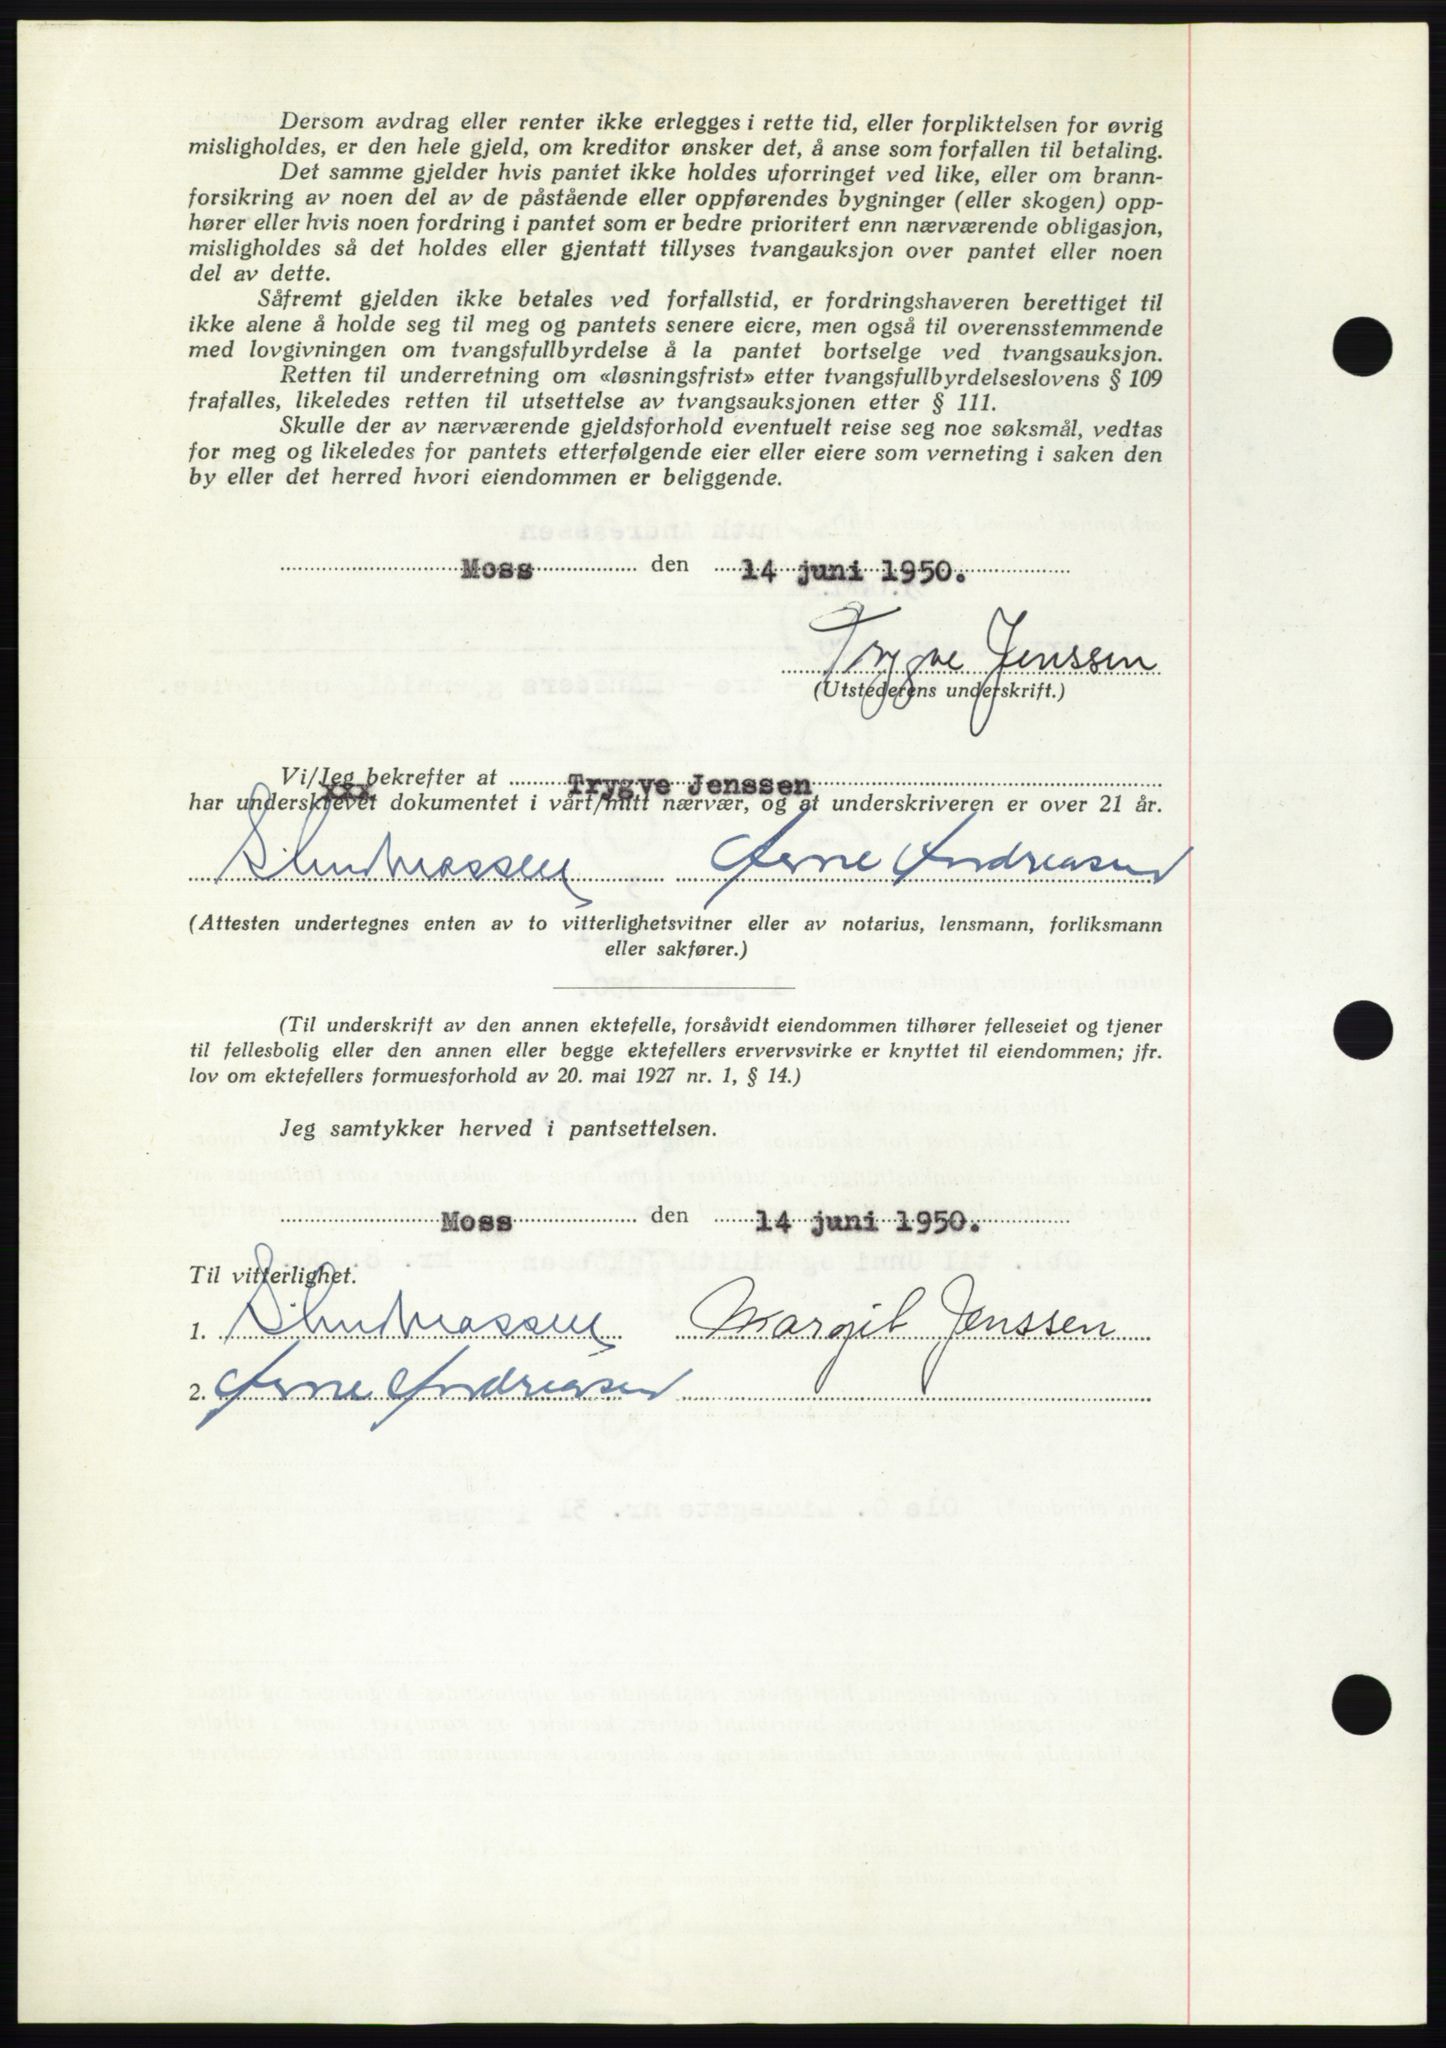 Dersom avdrag eller renter ikke erlegges i rette tid, eller forpliktelsen for øvrig
misligholdes, er den hele gjeld, om kreditor ønsker det, å anse som forfallen til betaling.
Det samme gjelder hvis pantet ikke holdes uforringet ved like, eller om brann-
forsikring av noen del av de påstående eller oppførendes bygninger (eller skogen) opp-
hører eller hvis noen fordring i pantet som er bedre prioritert enn nærværende obligasjon,
misligholdes så det holdes eller gjentatt tillyses tvangauksjon over pantet eller noen
del av dette.
Såfremt gjelden ikke betales ved forfallstid, er fordringshaveren berettiget til
ikke alene å holde seg til meg og pantets senere eiere, men også til overensstemmende
med lovgivningen om tvangsfullbyrdelse å la pantet bortselge ved tvangsauksjon.
Retten til underretning om «løsningsfrist» etter tvangsfullbyrdelseslovens § 109
frafalles, likeledes retten til utsettelse av tvangsauksjonen etter § 111.
Skulle der av nærværende gjeldsforhold eventuelt reise seg noe søksmål, vedtas
for meg og likeledes for pantets etterfølgende eier eller eiere som verneting i saken den
by eller det herred hvori eiendommen er beliggende.
Moss den 14 juni 1950.
Trygve Jenssen
(Utstederens underskrift.)
Vi/Jeg bekrefter at Trygve Jenssen
xxx
har underskrevet dokumentet i vårt/mitt nærvær, og at underskriveren er over 21 år.
Andreassen Arne Andreasen
(Attesten undertegnes enten av to vitterlighetsvitner eller av notarius, lensmann, forliksmann
eller sakfører.)
(Til underskrift av den annen ektefelle, forsåvidt eiendommen tilhører felleseiet og tjener
til fellesbolig eller den annen eller begge ektefellers ervervsvirke er knyttet til eiendommen; jfr.
lov om ektefellers formuesforhold av 20. mai 1927 nr. 1, § 14.)
Jeg samtykker herved i pantsettelsen.
Moss den 14 juni 1950.
Til vitterlighet.
1. Andreassen Margit Jenssen
2. Arne Andreasen